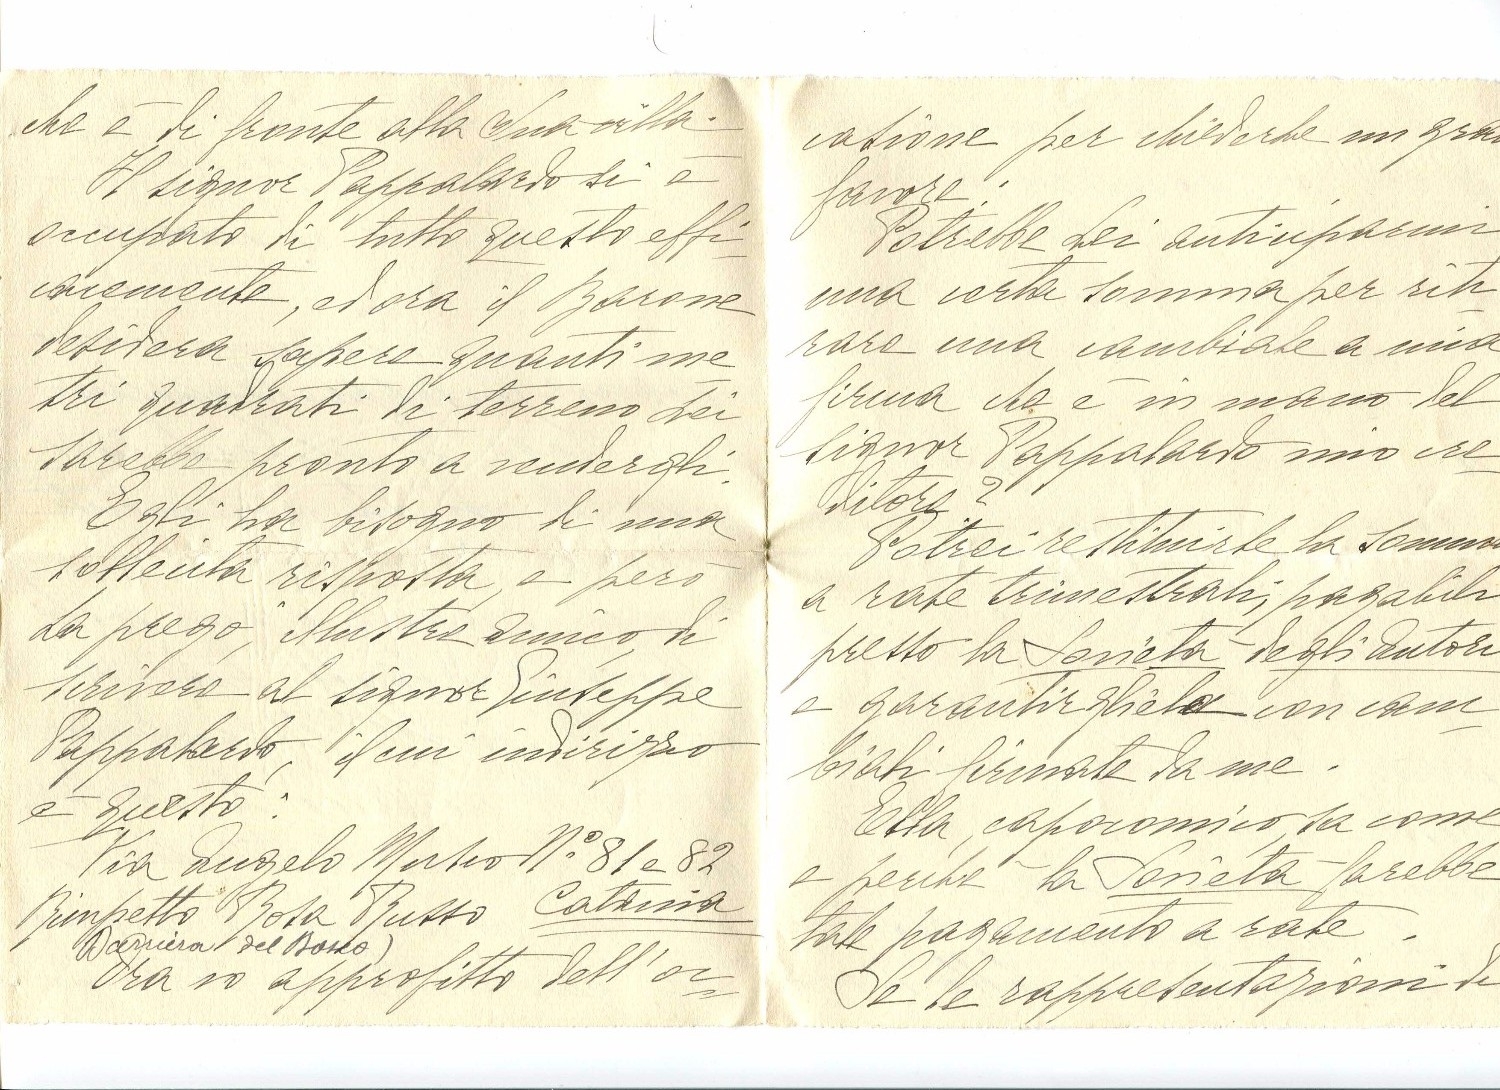 che è di fronte alla Sua villa.
Il signor Pappalardo si è
occupato di tutto questo effi-
cacemente, ed ora il Barone
desidera sapere quanti me
tri quadrati di terreno Lei
sarebbe pronto a vendergli.
Egli ha bisogno di una
sollecita risposta, e però
La prego, illustre amico, di
scrivere al signor Giuseppe
Pappalardo, il cui indirizzo
è questo:
Via Angelo Musco N.° 81 e 82
Rimpetto Rosa Russo Catania
(Barriera del Bosco)
Ora io approfitto dell'oc-
casione per chiederLe un gran
favore.
Potrebbe Lei anticiparmi
una certa somma per riti
rare una cambiale a mia
firma che è in mano del
signor Pappalardo mio cre-
ditore?
Potrei restituirLe la somma
a rate trimestrali, pagabili
presso la Società degli autori
e garantirgliela con cam-
biali firmate da me.
Ella, capocomico sa come
e perché la Società farebbe
tale pagamento a rate.
Se le rappresentazioni di